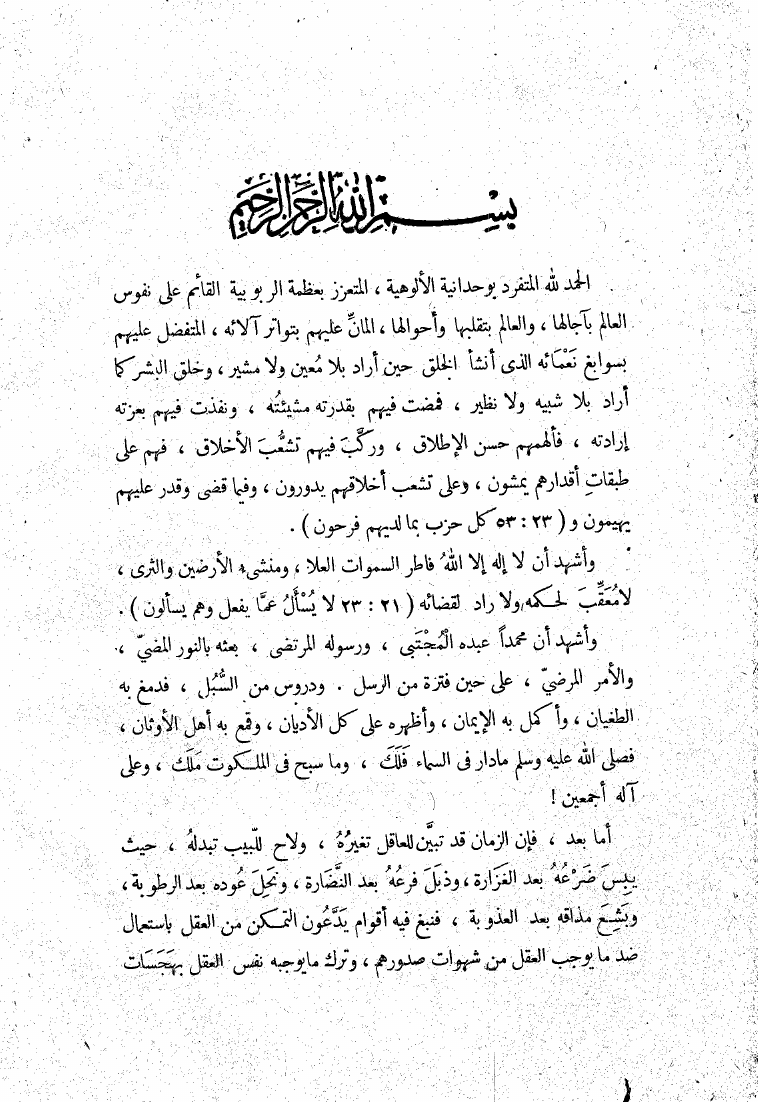 بسم الله الرحمن الرحيم
الحمد لله المتفرد بوحدانية الألوهية ، المتعزز بعظمة الربوبية القائم على نفوس
العالم بآجالها ، والعالم بتقلبها وأحوالها ، المانِّ عليهم بتواتر آلائه ، المتفضل عليهم
بسوابغ نَعْمَائه الذى أنشأ الخلق حين أراد بلا مُعين ولا مشير ، وخلق البشر كما
أراد بلا شبيه ولا نظير ، فمضت فيهم بقدرته مشيئتُه ، ونفذت فيهم بعزته
إرادته ، فألهمهم حسن الإطلاق ، وركَّبَ فيهم تشعُّبَ الأخلاق ، فهم على
طبقاتِ أقدارهم يمشون ، وعلى تشعب أخلاقهم يدورون ، وفيما قضى وقدر عليهم
يهيمون و ( ٢٣ : ٥٣ كل حزب بما لديهم فرحون ) .
وأشهد أن لا إله إلا اللهُ فاطر السموات العلا ، ومنشىء الأرضين والثرى ،
لا مُعَقِّبَ لحكمه ولا راد لقضائه ( ٢١ : ٢٣ لا يُسْأَلُ عمَّا يفعل وهم يسألون ) .
وأشهد أن محمداً عبده الْمُجْتَبى ، ورسوله المرتضى ، بعثه بالنور المضيّ ،
والأمر المرضيّ ، على حين فترة من الرسل . ودروس من السُّبُل ، فدمغ به
الطغيان ، وأكمل به الإيمان ، وأظهره على كل الأديان ، وقمع به أهل الأوثان ،
فصلى الله عليه وسلم مادار فى السماء فَلَكَ ، وما سبح فى الملكوت مَلَك ، وعلى
آله أجمعين !
أما بعد ، فإن الزمان قد تبيَّن للعاقل تغيرُهُ ، ولاح للّبيب تبدلهُ ، حيث
يبِسَ ضَرْعُهُ بعد الغَزَارة ، وذبَلَ فرعُهُ بعد النَّضَارة ، ونَحِلَ عُوده بعد الرطوبة ،
وبَشِعَ مذاقه بعد العذوبة ، فنبغ فيه أقوام يَدَّعُون التمكن من العقل باستعمال
ضد مايوجب العقل من شهوات صدورهم ، وترك مايوجبه نفس العقل بهَجَسَات